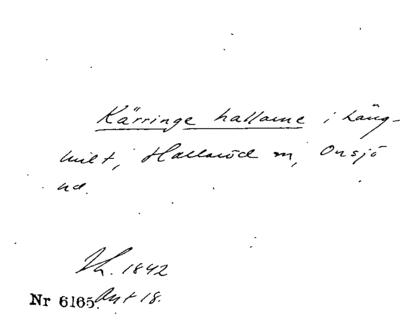 Kärringe hallarne i Läng-
hult, Hallaröd m, Onsjö
hd.
Th. 1842
Nr 6165. Ant 18.